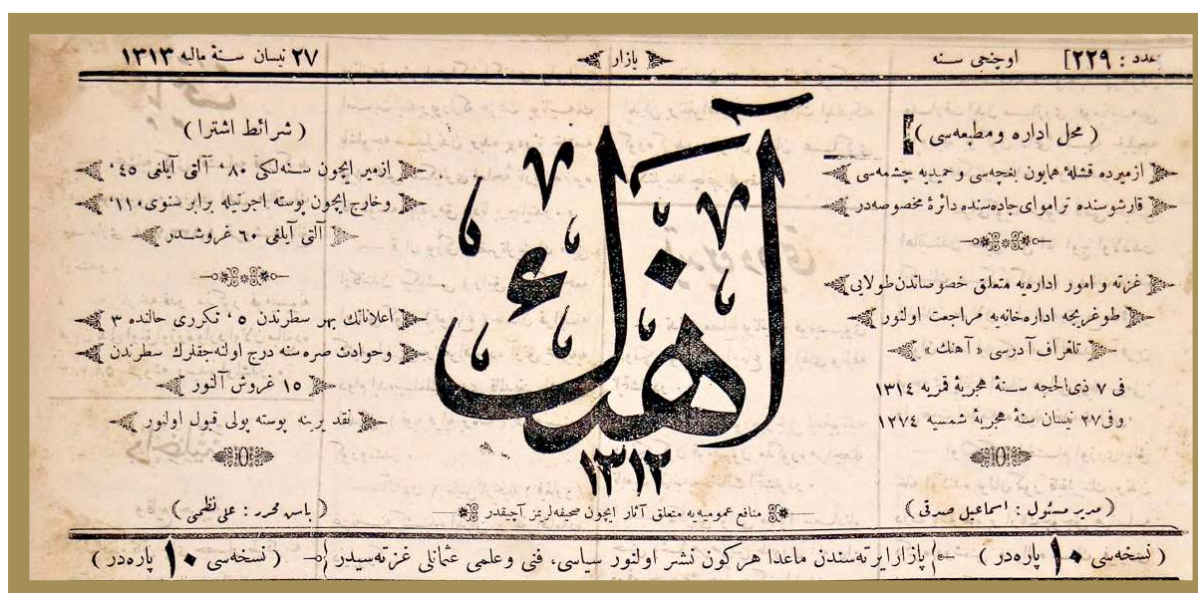 عدد : ٢٢٩]
اوچنجی سنه
بازار
٢٧ نیسان سنۀ مالیه ١٣١٣
( محل اداره و مطبعه‌سی )
ازمیرده قشلۀ همایون بغچه‌سی و حمیدیه چشمه‌سی
قارشوسنده تراموای جاده‌سنده دائرۀ مخصوصه‌در
غزته و امور اداره‌یه متعلق خصوصاتدن طولایی
طوغریجه اداره‌خانه‌یه مراجعت اولنور
تلغراف آدرسی « آهنك »
فی ٧ ذی الحجه سنۀ هجریۀ قمریه ١٣١٤
وفی ٢٧ نیسان سنۀ هجریۀ شمسیه ١٢٧٤
( مدیر مسئول : اسماعیل صدقی )
آهنك
١٣١٢
منافع عمومیه‌یه متعلق آثار ایچون صحیفه‌لریمز آچیقدر
( شرائط اشترا )
ازمیر ایچون سنه‌لکی ٨٠، آلتی آیلغی ٤٥،
وخارج ایچون پوسته اجرتیله برابر سنوی ١١٠،
آلتی آیلغی ٦٠ غروشدر
اعلاناتك بهر سطرندن ٥، تکرری حالنده ٣
وحوادث صره‌سنه درج اوله‌جقلرك سطرندن
١٥ غروش آلنور
نقد یرینه پوسته پولی قبول اولنور
( باش محرر : علی نظمی )
( نسخه‌سی ١٠ پاره‌در )
پازارایرته‌سندن ماعدا هر کون نشر اولنور سیاسی، فنی و علمی عثمانلی غزته‌سیدر
( نسخه‌سی ١٠ پاره‌در )